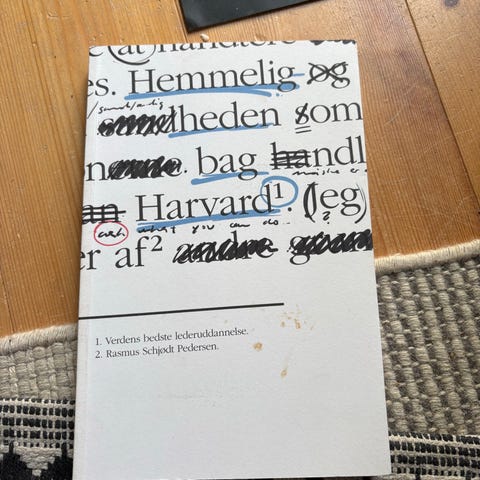 e (at) håndtere
es. Hemmelig og
/ sund/ærlig
heden som
n bag handl
an Harvard¹. (Jeg)
what you can do
er af²
1. Verdens bedste lederuddannelse.
2. Rasmus Schjødt Pedersen.